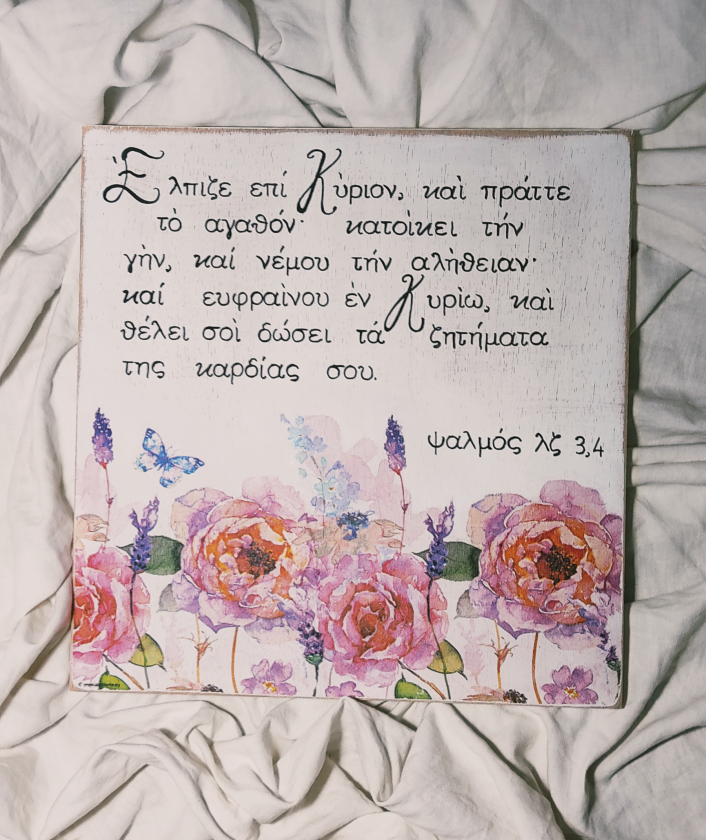 Ἐλπιζε επί Κὺριον, καὶ πράττε
τὸ αγαθόν· κατοὶκει τήν
γὴν, καί νέμου τήν αλὴθειαν·
καί ευφραὶνου ἐν Κυρὶω, καὶ
θέλει σοὶ δώσει τά ζητήματα
της καρδίας σου.
ψαλμός λζ 3,4